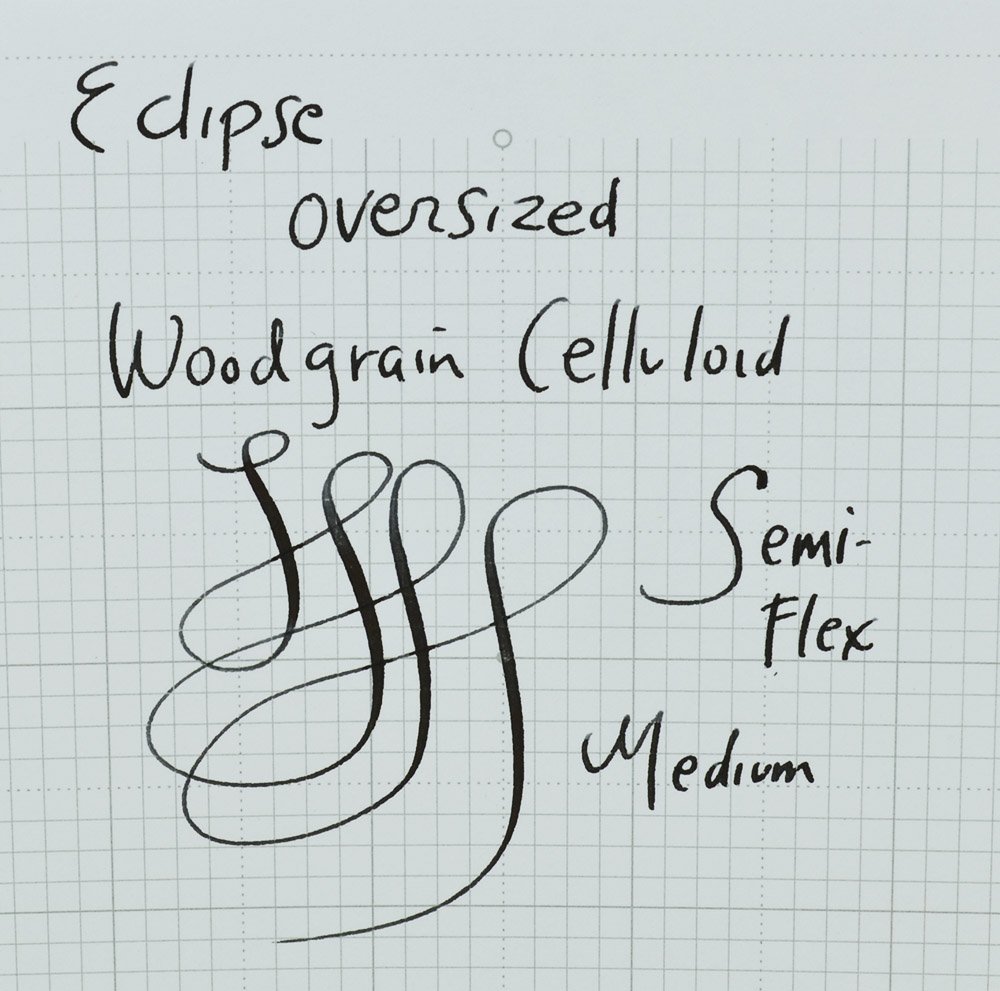 Eclipse
oversized
Woodgrain Celluloid
Semi-
Flex
Medium